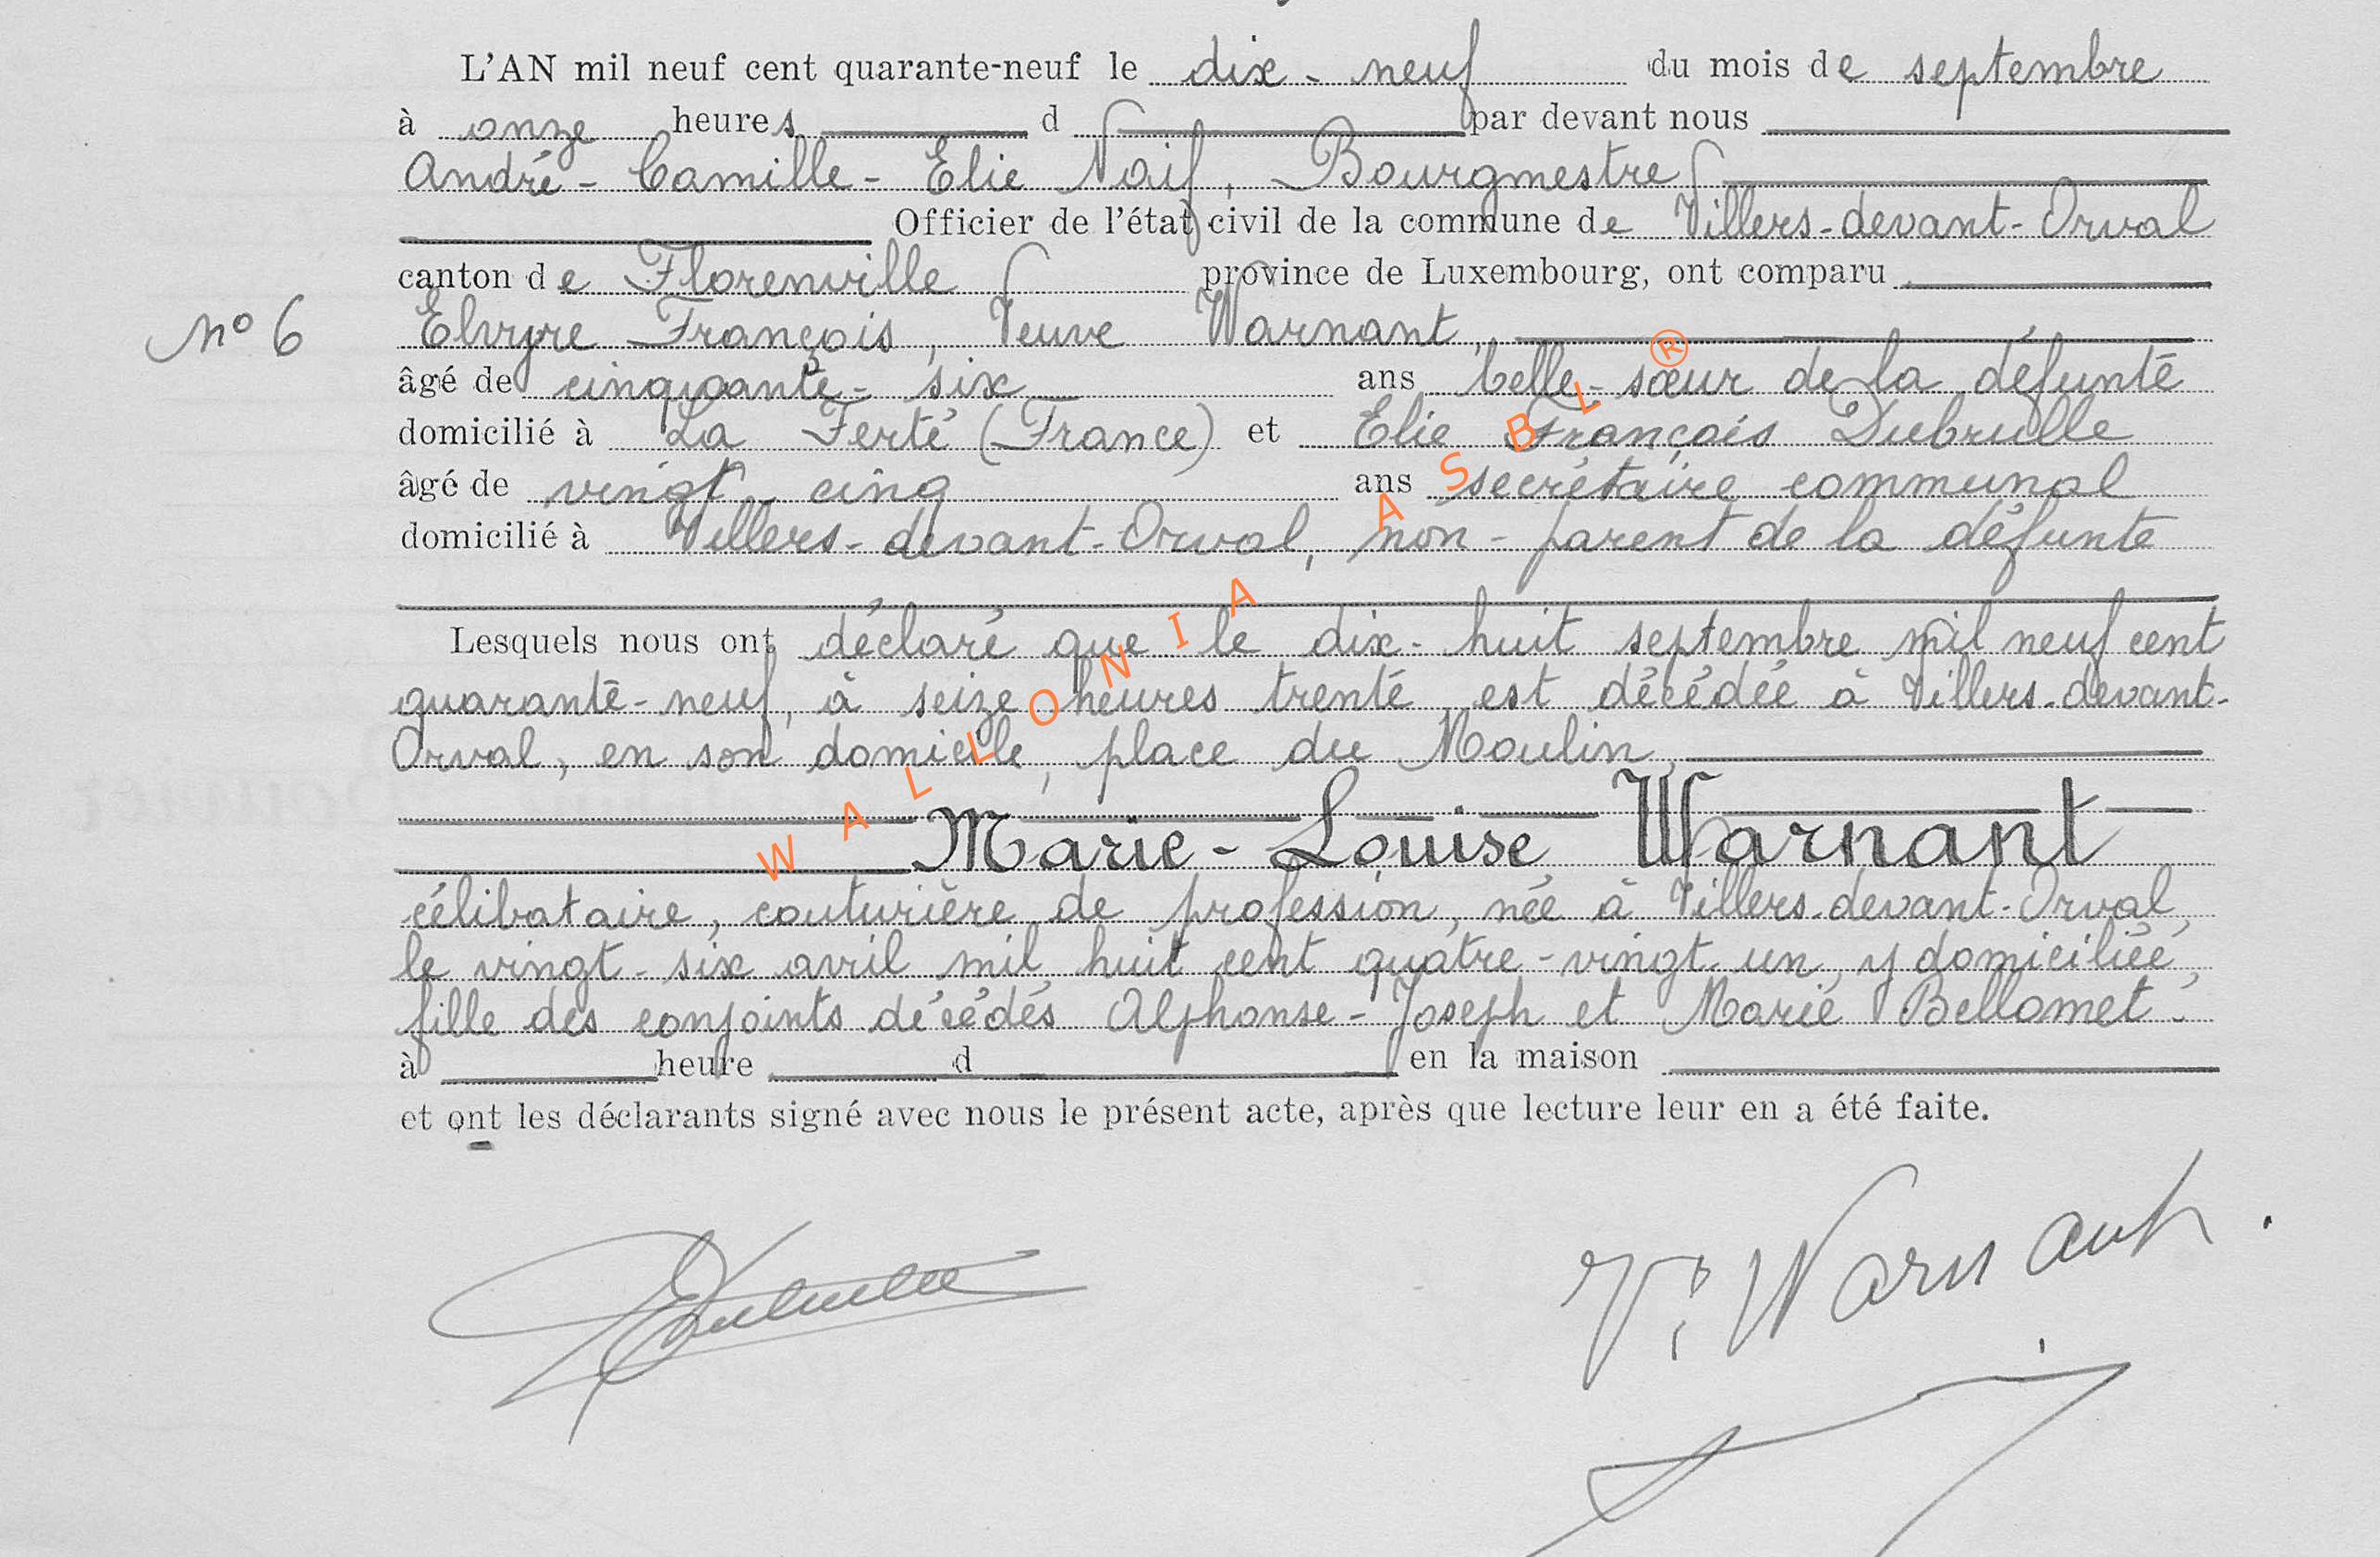 L'AN mil neuf cent quarante-neuf le dix-neuf du mois de septembre
à onze heures d par devant nous
André-Camille-Elie Naif, Bourgmestre
Officier de l'état civil de la commune de Villers-devant-Orval
canton de Florenville province de Luxembourg, ont comparu
n° 6 Elvyre François, Veuve Warnant,
âgé de cinquante-six ans belle-sœur de la défunte
domicilié à La Ferté (France) et Elie François Dubrulle
âgé de vingt-cinq ans secrétaire communal
domicilié à Villers-devant-Orval, non-parent de la défunte
Lesquels nous ont déclaré que le dix-huit septembre mil neuf cent
quarante-neuf, à seize heures trente est décédée à Villers-devant-
Orval, en son domicile, place du Moulin,
Marie-Louise Warnant
célibataire, couturière de profession, née à Villers-devant-Orval,
le vingt-six avril mil huit cent quatre-vingt-un, y domiciliée,
fille des conjoints décédés Alphonse-Joseph et Marie Bellomet.
à heure d en la maison
et ont les déclarants signé avec nous le présent acte, après que lecture leur en a été faite.
V. Warnant.
WALLONIA ASBL ®